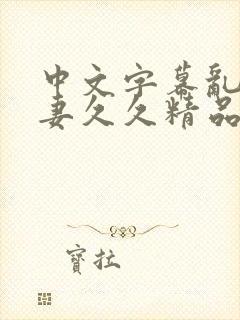 中文字幕亂
妻久久精品
寶拉